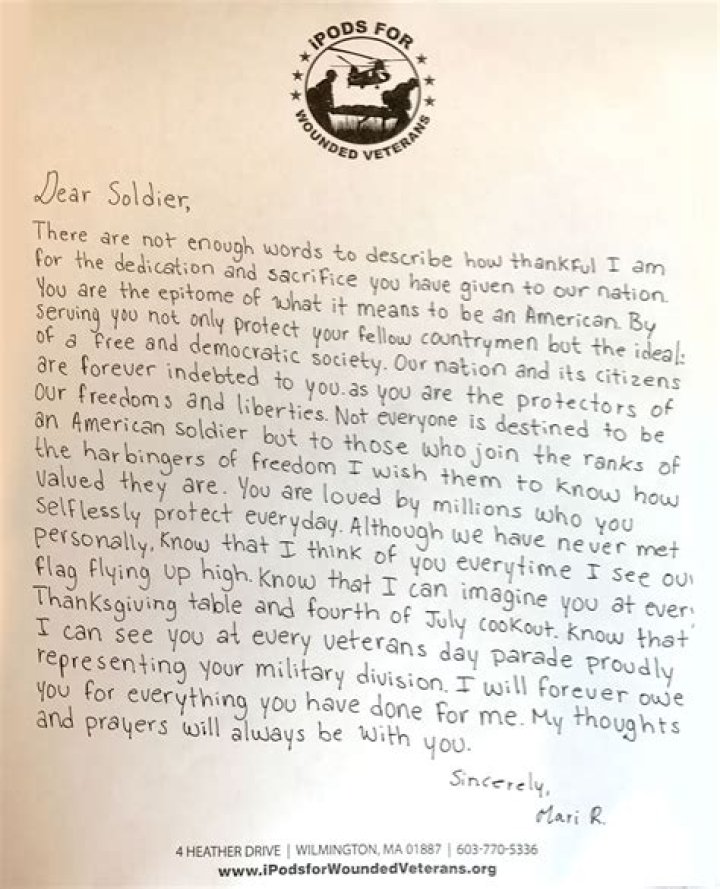 iPODS FOR
WOUNDED VETERANS
Dear Soldier,
There are not enough words to describe how thankful I am
for the dedication and sacrifice you have given to our nation.
You are the epitome of what it means to be an American. By
serving you not only protect your fellow countrymen but the ideal:
of a free and democratic society. Our nation and its citizens
are forever indebted to you. as you are the protectors of
our freedoms and liberties. Not everyone is destined to be
an American soldier but to those who join the ranks of
the harbingers of freedom I wish them to know how
valued they are. You are loved by millions who you
selflessly protect everyday. Although we have never met
personally, know that I think of you everytime I see our
flag flying up high. Know that I can imagine you at ever
Thanksgiving table and fourth of July cookout. Know that
I can see you at every veterans day parade proudly
representing your military division. I will forever owe
you for everything you have done for me. My thoughts
and prayers will always be with you.
Sincerely,
Mari R.
4 HEATHER DRIVE | WILMINGTON, MA 01887 | 603-770-5336
www.iPodsforWoundedVeterans.org